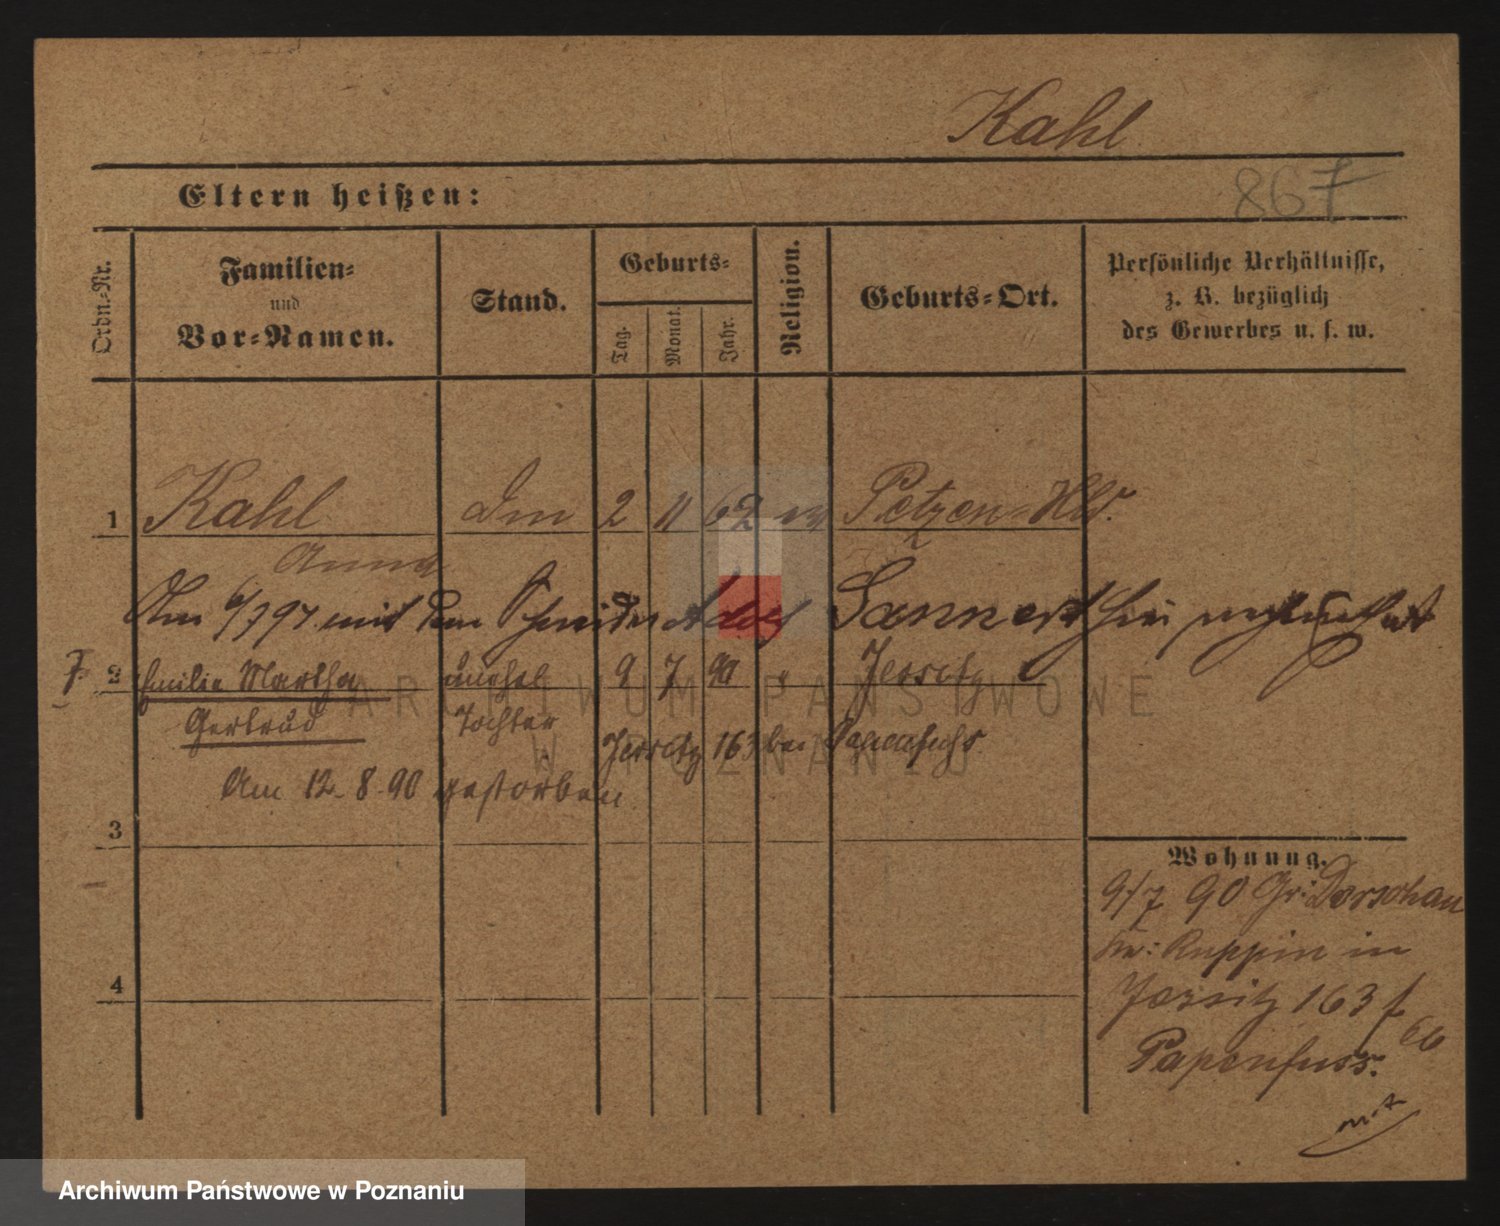 Kahl
867
Eltern heißen:
Ordn.-Nr.
Familien-
und
Vor-Namen.
Stand.
Geburts-
Tag.
Monat.
Jahr.
Religion.
Geburts-Ort.
Persönliche Verhältnisse,
z. B. bezüglich
des Gewerbes u. s. w.
1 Kahl 2 11 62 ev Petzen-Hld.
Anna
Am 6/7 97 mit dem Schneider Adolf Sannert hier
2 Emilie Martha unehel 9 7 90 " Jersitz
Gertrud Tochter
Jersitz 163 bei Papenfuhs
Am 12-8-90 gestorben
3
4
Wohnung.
9/7 90 Gr: Dorschau
Kr: Ruppin in
Jersitz 163 f
Papenfuss.
ARCHIWUM PAŃSTWOWE
W POZNANIU
Archiwum Państwowe w Poznaniu